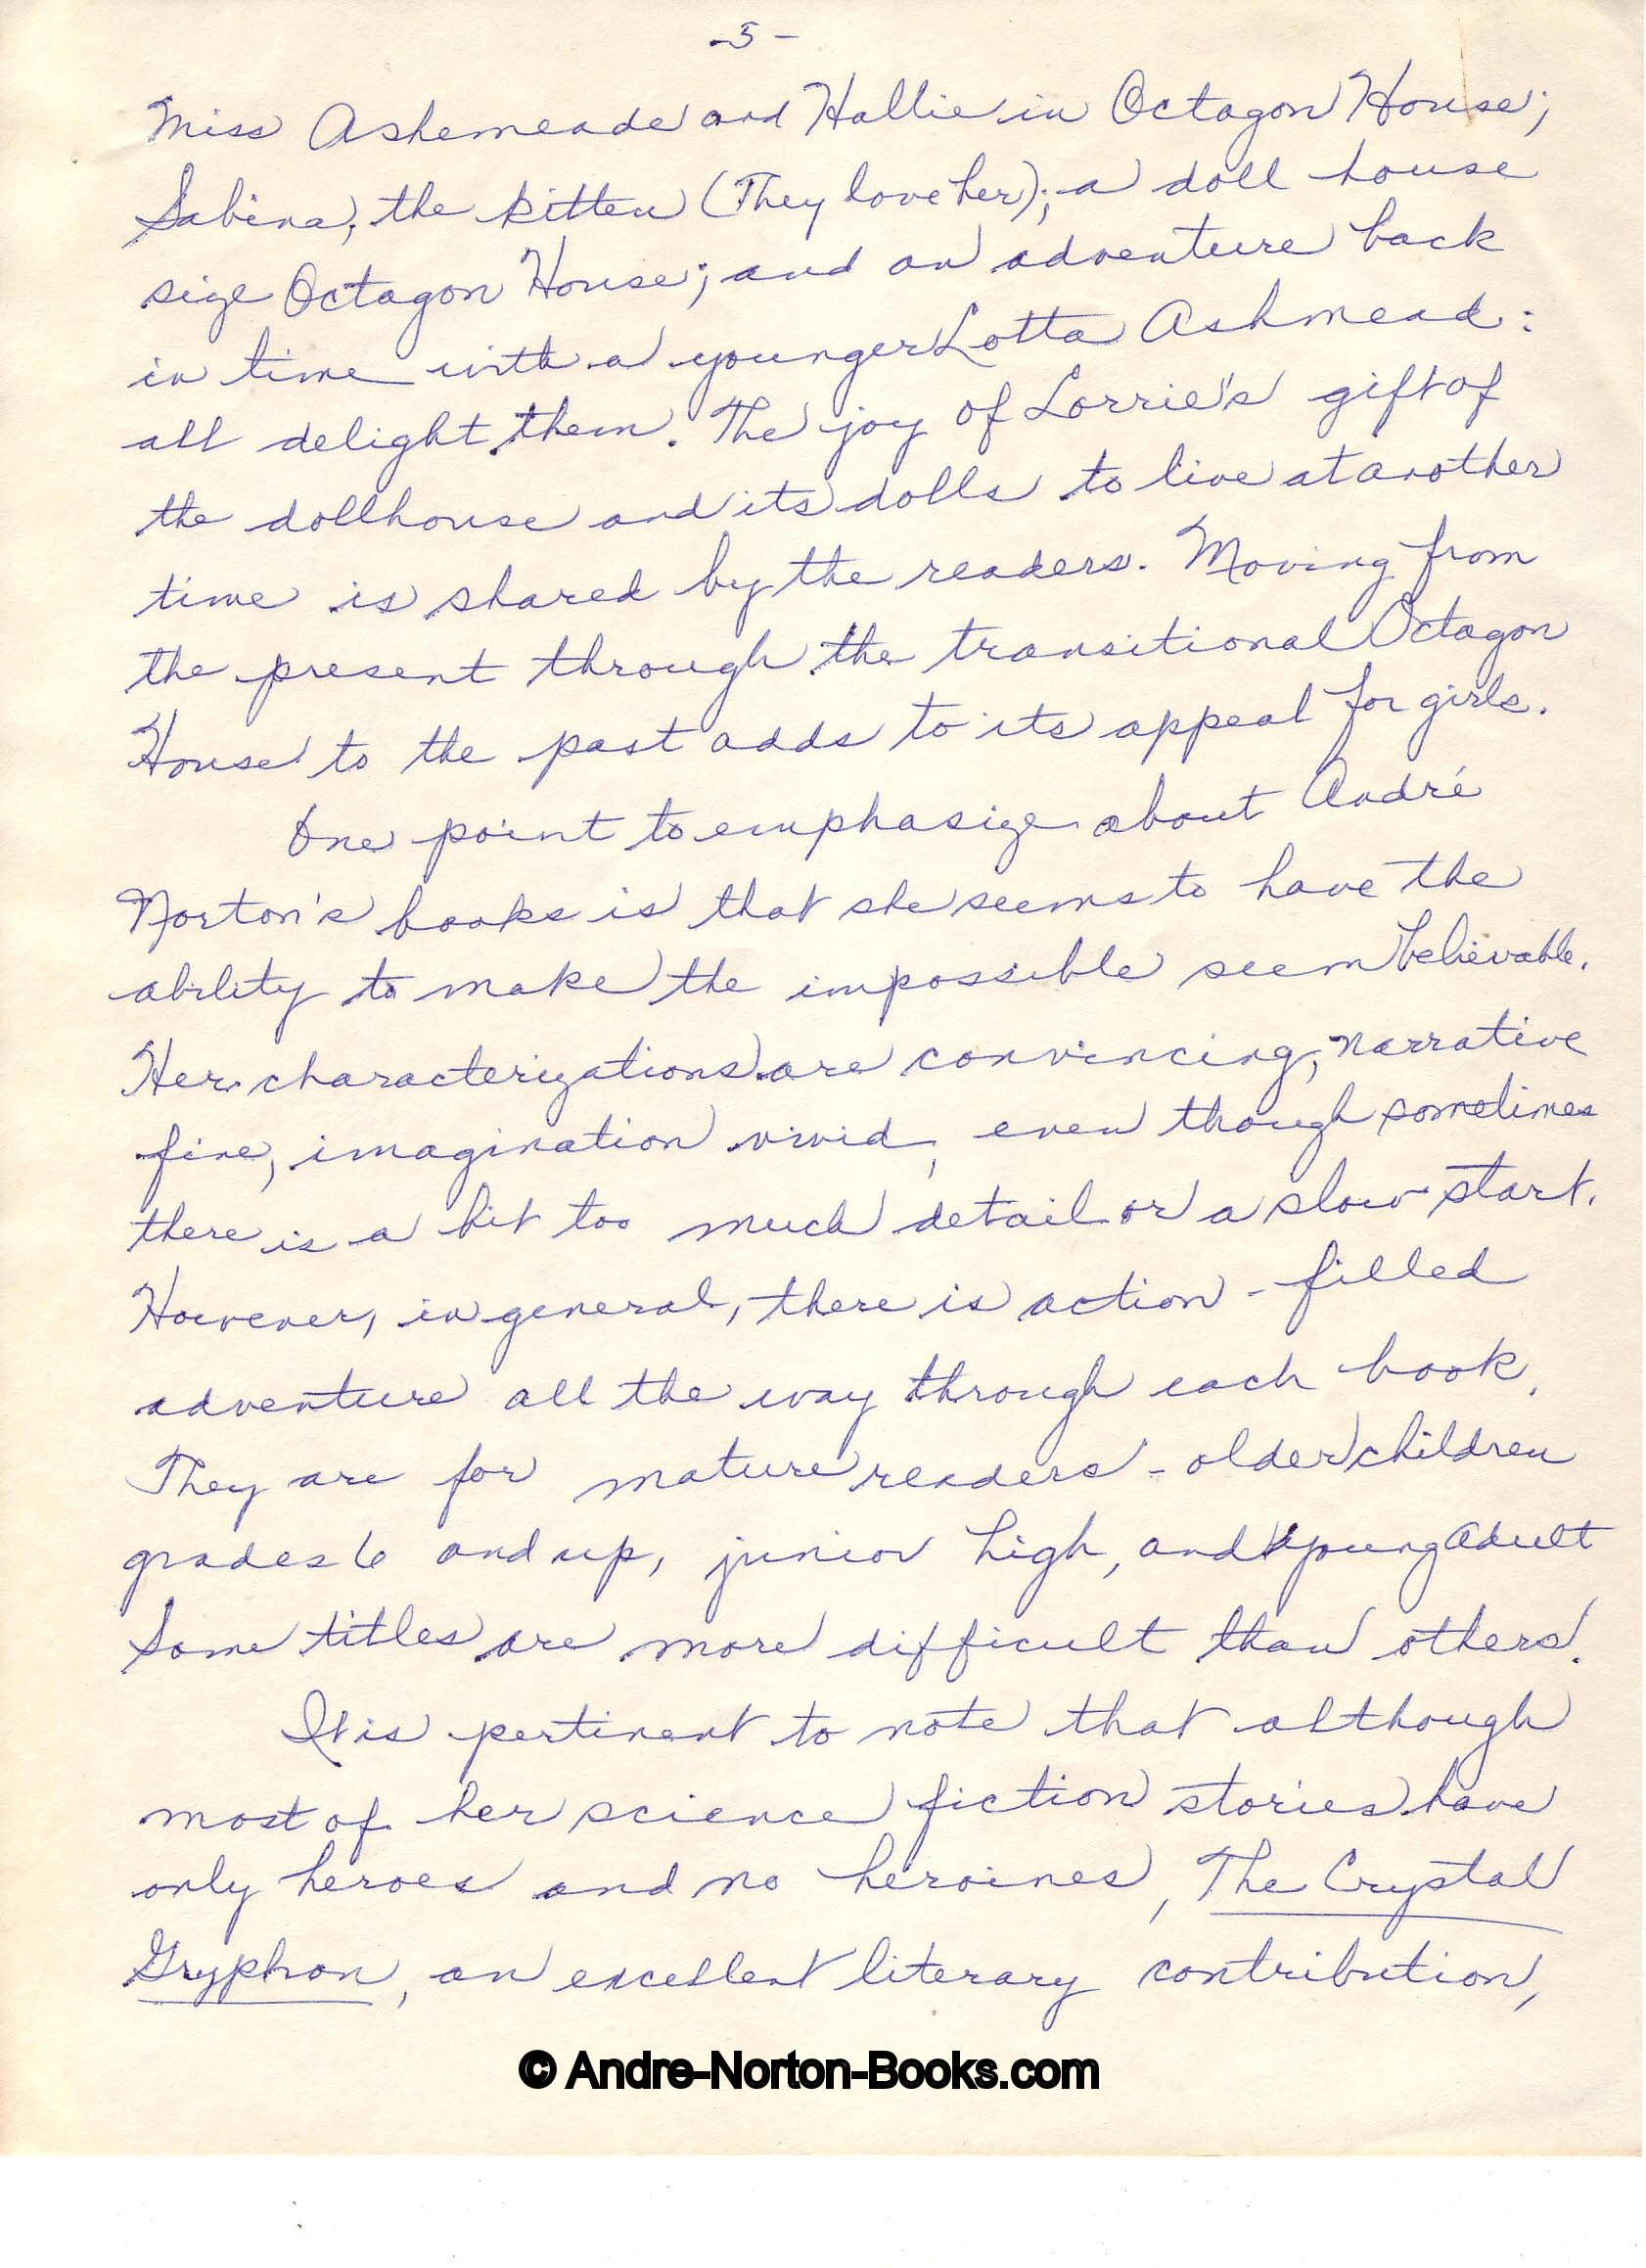 -5-
Miss Ashemeade and Hallie in Octagon House;
Sabina, the kitten (They love her); a doll house
size Octagon House; and an adventure back
in time with a younger Lotta Ashmead:
all delight them. The joy of Lorrie's gift of
the dollhouse and its dolls to live at another
time is shared by the readers. Moving from
the present through the transitional Octagon
House to the past adds to its appeal for girls.
One point to emphasize about André
Norton's books is that she seems to have the
ability to make the impossible seem believable.
Her characterizations are convincing, narrative
fine, imagination vivid, even though sometimes
there is a bit too much detail or a slow start.
However, in general, there is action-filled
adventure all the way through each book.
They are for mature readers - older children
grades 6 and up, junior high, and young adult
Some titles are more difficult than others.
It is pertinent to note that although
most of her science fiction stories have
only heroes and no heroines, The Crystal
Gryphon, an excellent literary contribution,
© Andre-Norton-Books.com